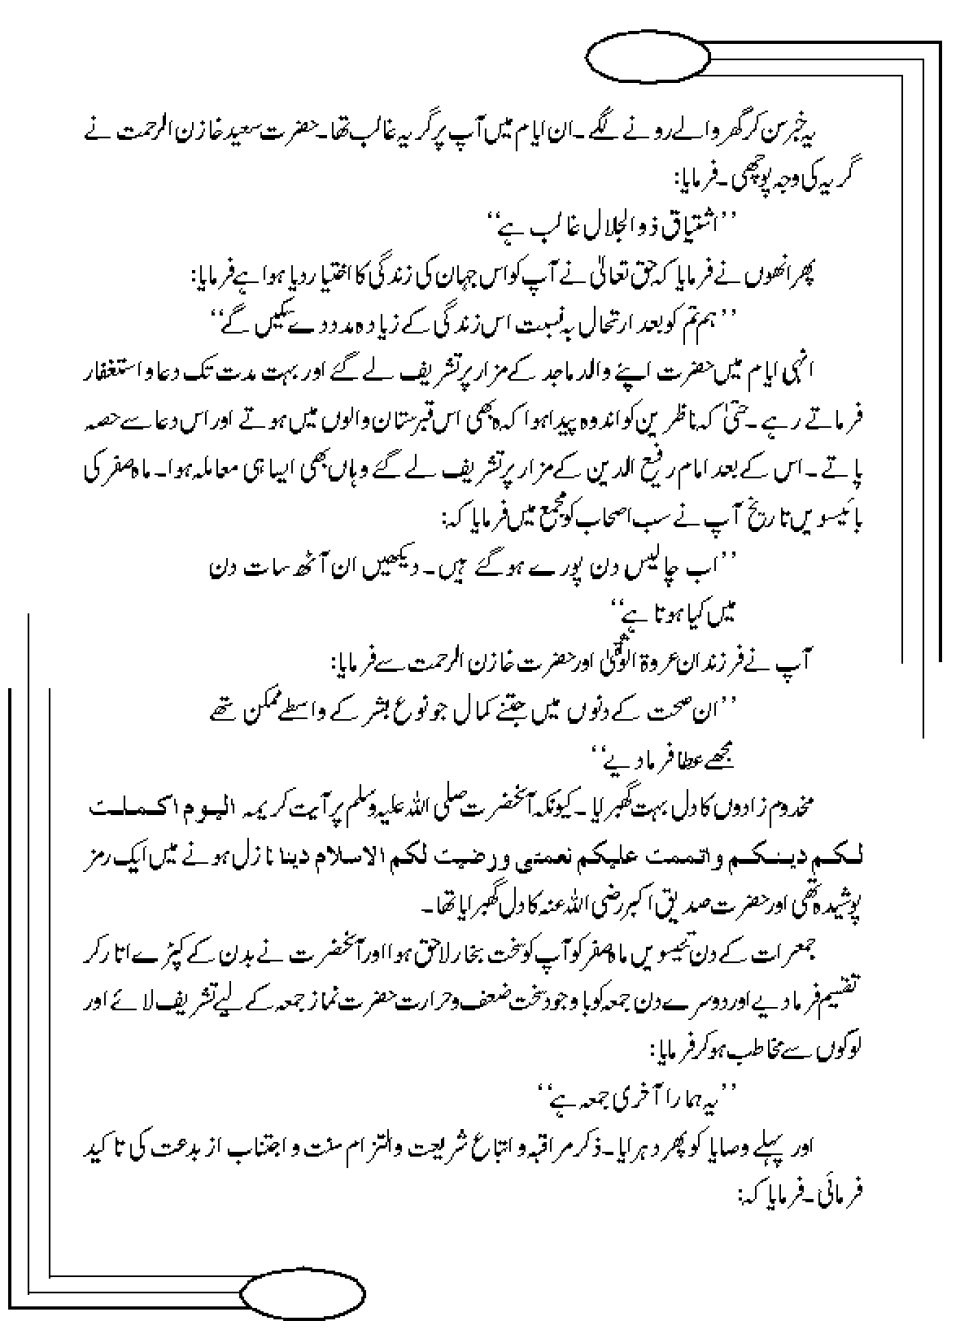 یہ خبر سن کر گھر والے رونے لگے۔ ان ایام میں آپ پر گریہ غالب تھا۔ حضرت سعید خازن الرحمت نے
گریہ کی وجہ پوچھی۔ فرمایا:
’’اشتیاق ذوالجلال غالب ہے‘‘
پھر انھوں نے فرمایا کہ حق تعالیٰ نے آپ کو اس جہان کی زندگی کا اختیار دیا ہوا ہے فرمایا:
’’ہم تم کو بعد ارتحال بہ نسبت اس زندگی کے زیادہ مدد دے سکیں گے‘‘
انہی ایام میں حضرت اپنے والد ماجد کے مزار پر تشریف لے گئے اور بہت مدت تک دعا و استغفار
فرماتے رہے۔ حتیٰ کہ ناظرین کو اندوہ پیدا ہوا کہ وہ بھی اس قبرستان والوں میں ہوتے اور اس دعا سے حصہ
پاتے۔ اس کے بعد امام رفیع الدین کے مزار پر تشریف لے گئے وہاں بھی ایسا ہی معاملہ ہوا۔ ماہ صفر کی
بائیسویں تاریخ آپ نے سب اصحاب کو مجمع میں فرمایا کہ:
’’اب چالیس دن پورے ہوگئے ہیں۔ دیکھیں ان آٹھ سات دن
میں کیا ہوتا ہے‘‘
آپ نے فرزندان عروۃ الوثقیٰ اور حضرت خازن الرحمت سے فرمایا:
’’ان صحت کے دنوں میں جتنے کمال جو نوع بشر کے واسطے ممکن تھے
مجھے عطا فرما دیے‘‘
مخدوم زادوں کا دل بہت گھبرایا۔ کیونکہ آنحضرت صلی اللہ علیہ وسلم پر آیت کریمہ الیوم اکملت
لکم دینکم واتممت علیکم نعمتی ورضیت لکم الاسلام دینا نازل ہونے میں ایک رمز
پوشیدہ تھی اور حضرت صدیق اکبر رضی اللہ عنہ کا دل گھبرایا تھا۔
جمعرات کے دن تئیسویں ماہ صفر کو آپ کو سخت بخار لاحق ہوا اور آنحضرت نے بدن کے کپڑے اتار کر
تقسیم فرما دیے اور دوسرے دن جمعہ کو باوجود سخت ضعف و حرارت حضرت نماز جمعہ کے لیے تشریف لائے اور
لوگوں سے مخاطب ہو کر فرمایا:
’’یہ ہمارا آخری جمعہ ہے‘‘
اور پہلے وصایا کو پھر دہرایا۔ ذکر مراقبہ و اتباع شریعت والتزام سنت و اجتناب از بدعت کی تاکید
فرمائی۔ فرمایا کہ: